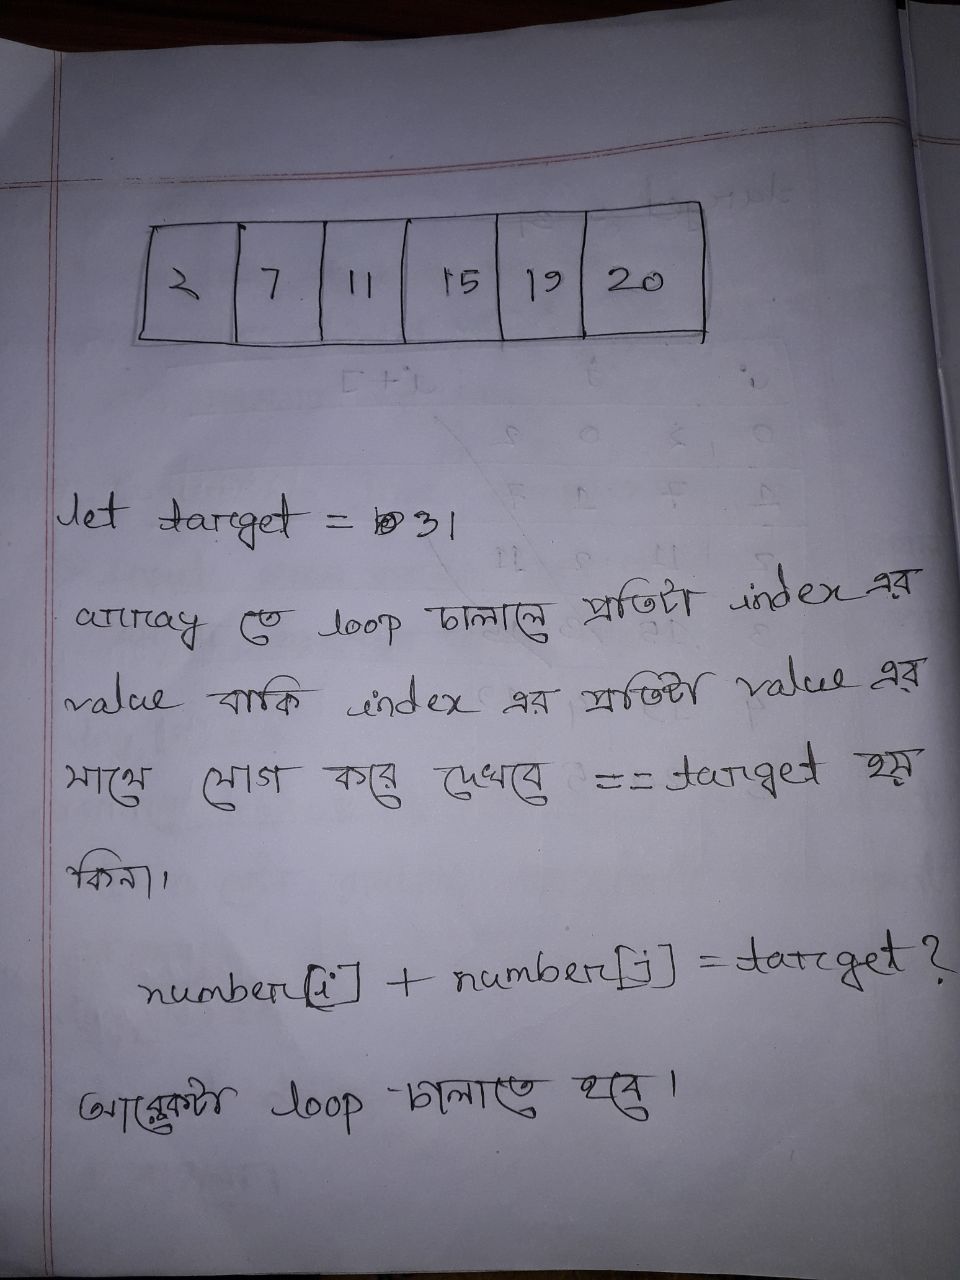 2 7 11 15 19 20
let target = 31
array তে loop চালালে প্রতিটা index এর
value বাকি index এর প্রতিটা value এর
সাথে যোগ করে দেখবে == target হয়
কিনা।
number[i] + number[j] = target?
আরেকটা loop চালাতে হবে।